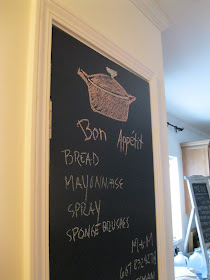 Bon Appétit
BREAD
MAYONNAISE
SPRAY
SPONGE BRUSHES
M & M